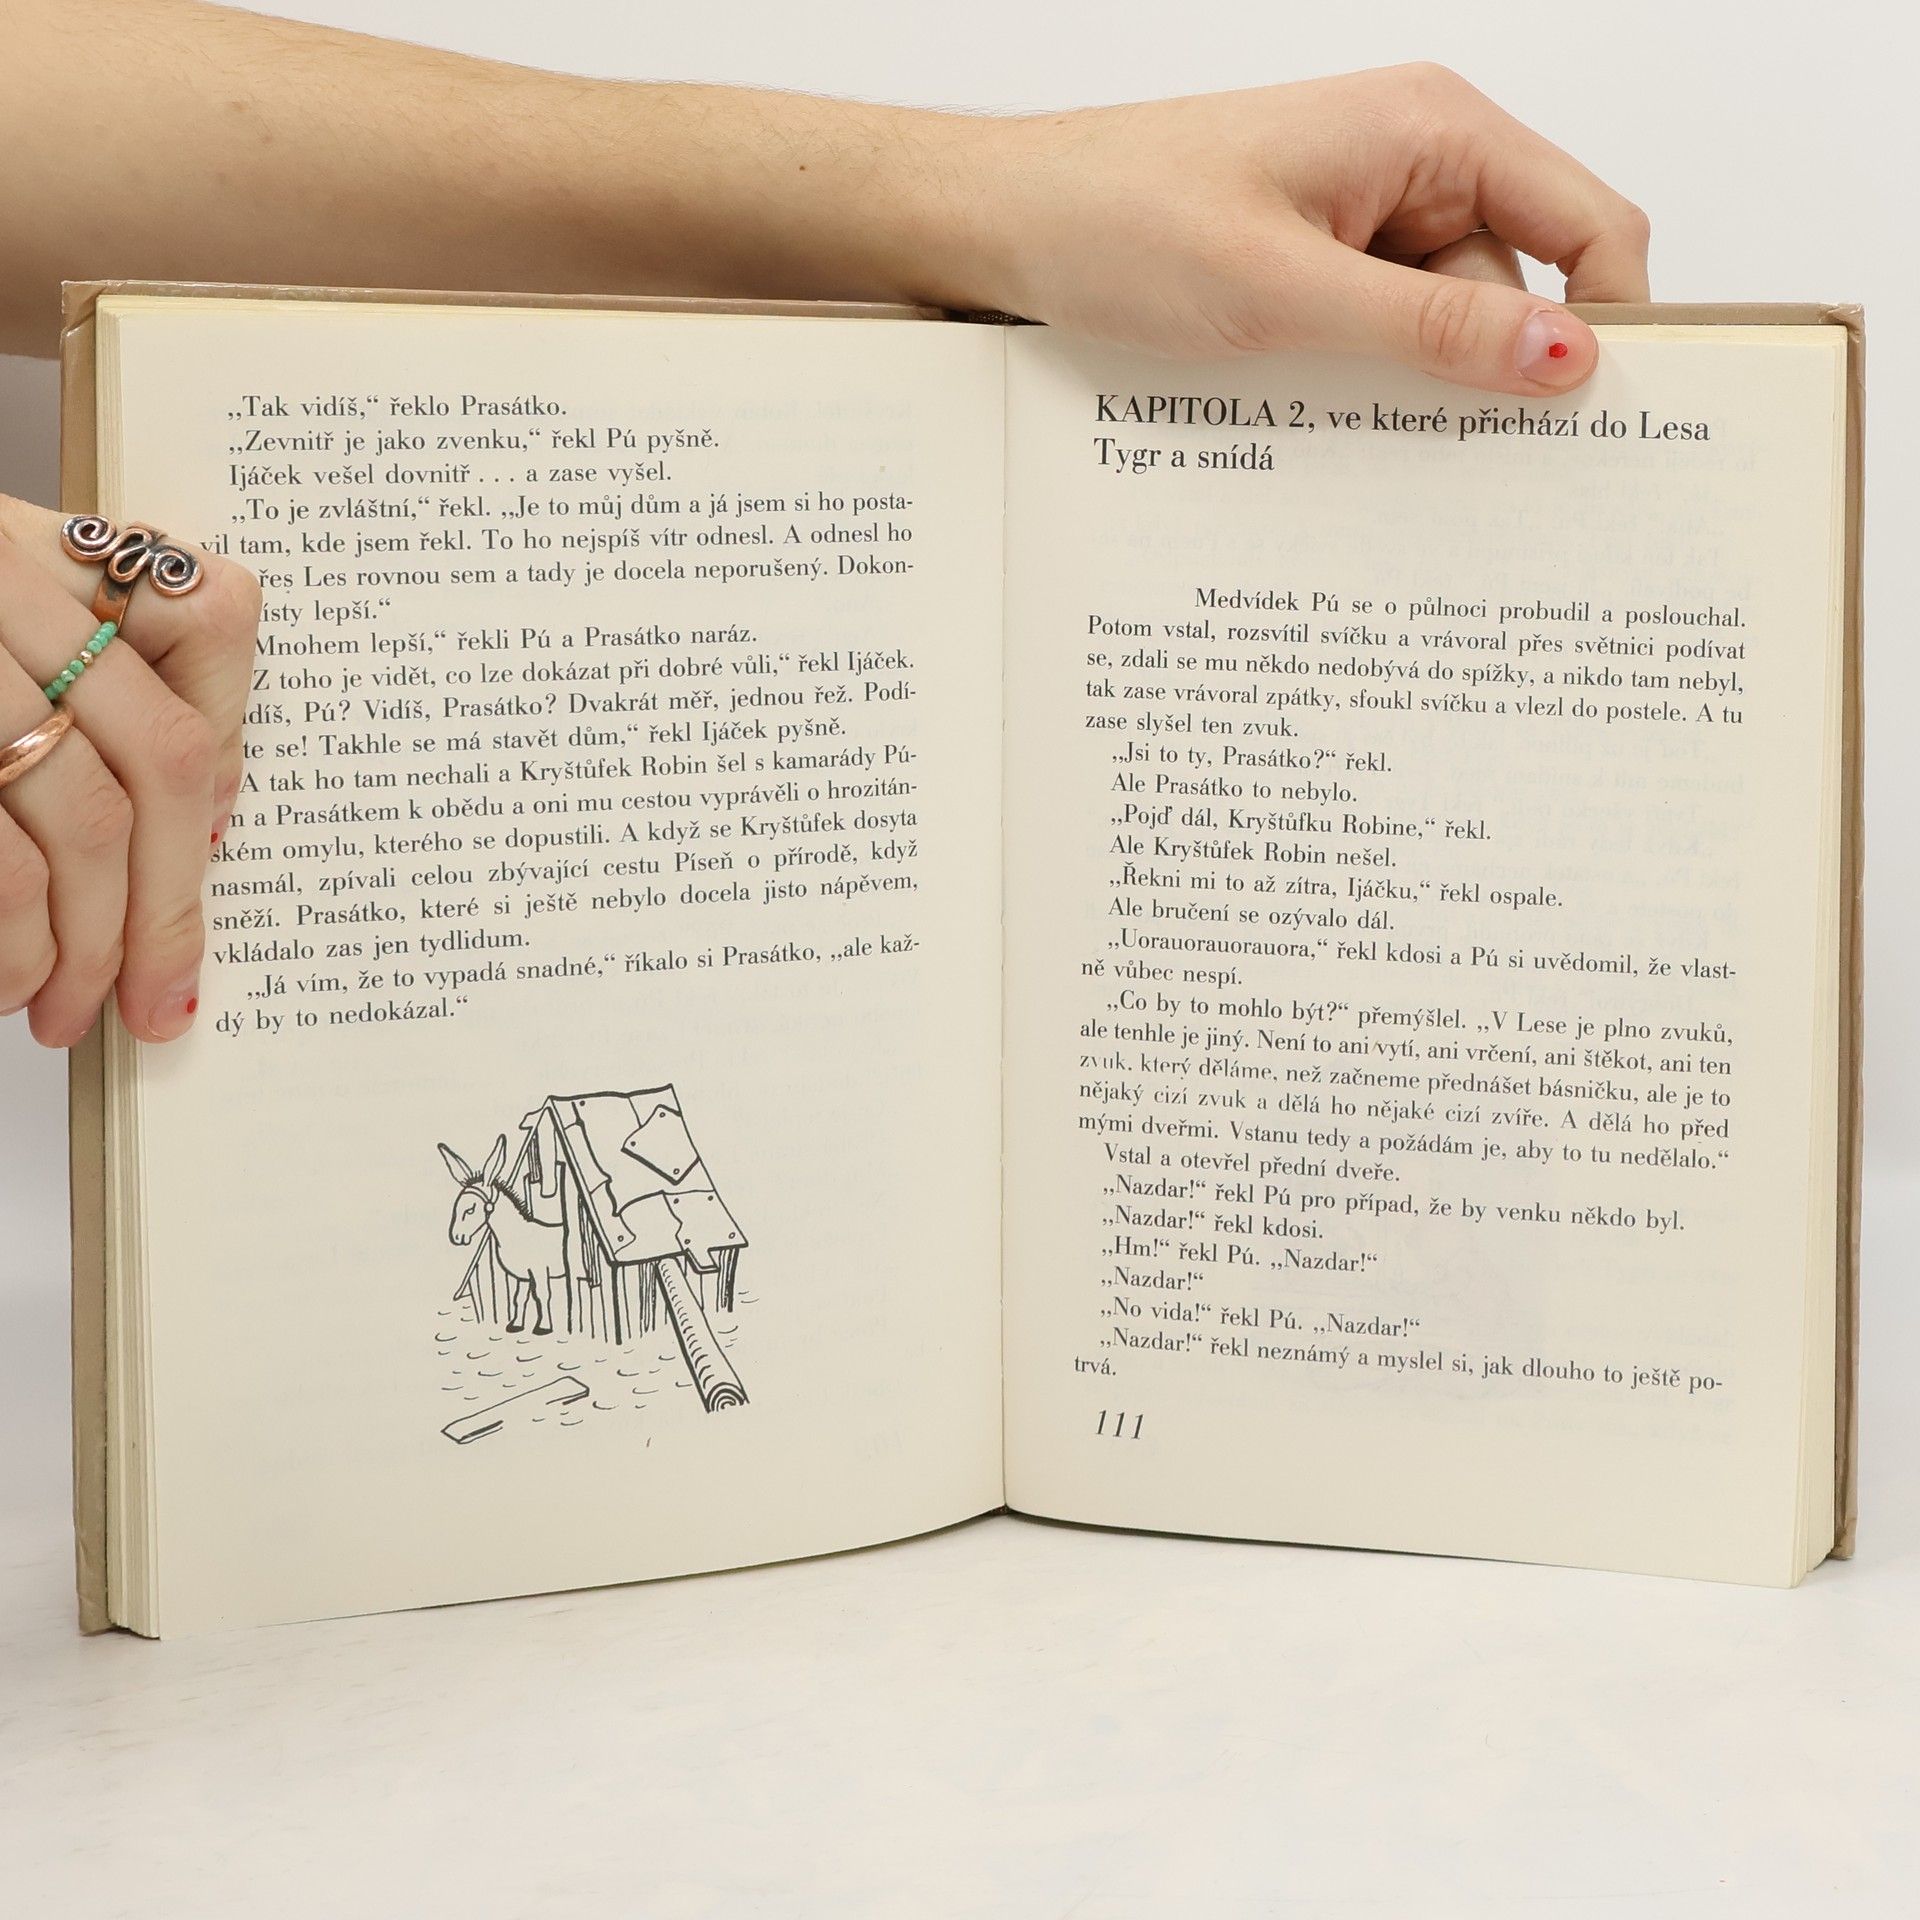 „Tak vidíš,“ řeklo Prasátko.
„Zevnitř je jako zvenku,“ řekl Pú pyšně.
Ijáček vešel dovnitř . . . a zase vyšel.
„To je zvláštní,“ řekl. „Je to můj dům a já jsem si ho posta-
vil tam, kde jsem řekl. To ho nejspíš vítr odnesl. A odnesl ho
Les rovnou sem a tady je docela neporušený. Dokon-
lepší.“
Mnohem lepší,“ řekli Pú a Prasátko naráz.
Z toho je vidět, co lze dokázat při dobré vůli,“ řekl Ijáček.
Pú? Vidíš, Prasátko? Dvakrát měř, jednou řež. Podí-
se! Takhle se má stavět dům,“ řekl Ijáček pyšně.
A tak ho tam nechali a Kryštůfek Robin šel s kamarády Pú-
a Prasátkem k obědu a oni mu cestou vyprávěli o hrozitán-
ském omylu, kterého se dopustili. A když se Kryštůfek dosyta
nasmál, zpívali celou zbývající cestu Píseň o přírodě, když
sněží. Prasátko, které si ještě nebylo docela jisto nápěvem,
vkládalo zas jen tydlidum.
„Já vím, že to vypadá snadné,“ říkalo si Prasátko, „ale kaž-
dý by to nedokázal.“
KAPITOLA 2, ve které přichází do Lesa
Tygr a snídá
Medvídek Pú se o půlnoci probudil a poslouchal.
Potom vstal, rozsvítil svíčku a vrávoral přes světnici podívat
se, zdali se mu někdo nedobývá do spížky, a nikdo tam nebyl,
tak zase vrávoral zpátky, sfoukl svíčku a vlezl do postele. A tu
zase slyšel ten zvuk.
„Jsi to ty, Prasátko?“ řekl.
Ale Prasátko to nebylo.
„Pojď dál, Kryštůfku Robine,“ řekl.
Ale Kryštůfek Robin nešel.
„Řekni mi to až zítra, Ijáčku,“ řekl ospale.
Ale bručení se ozývalo dál.
„Uorauorauorauora,“ řekl kdosi a Pú si uvědomil, že vlast-
ně vůbec nespí.
„Co by to mohlo být?“ přemýšlel. „V Lese je plno zvuků,
ale tenhle je jiný. Není to ani vytí, ani vrčení, ani štěkot, ani ten
zvuk, který děláme, než začneme přednášet básničku, ale je to
nějaký cizí zvuk a dělá ho nějaké cizí zvíře. A dělá ho před
mými dveřmi. Vstanu tedy a požádám je, aby to tu nedělalo.“
Vstal a otevřel přední dveře.
„Nazdar!“ řekl Pú pro případ, že by venku někdo byl.
„Nazdar!“ řekl kdosi.
„Hm!“ řekl Pú. „Nazdar!“
„Nazdar!“
„No vida!“ řekl Pú. „Nazdar!“
„Nazdar!“ řekl neznámý a myslel si, jak dlouho to ještě po-
trvá.
111